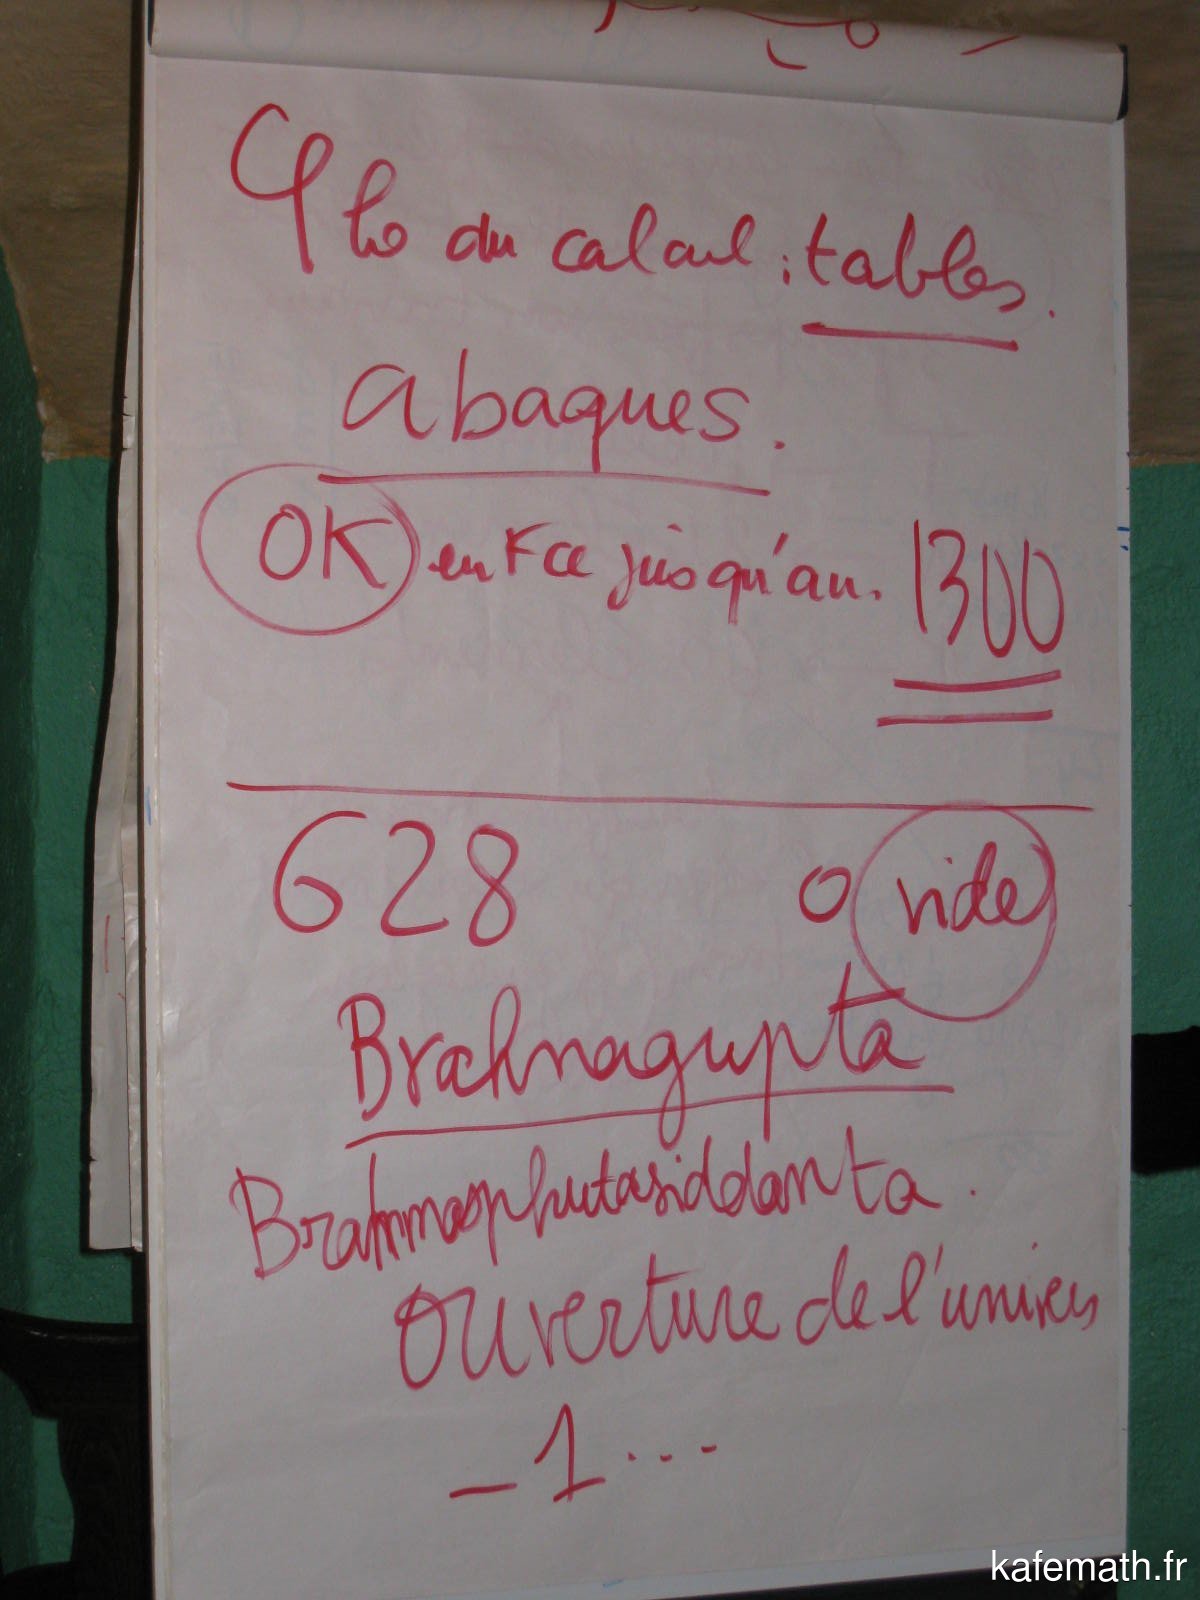 du calcul : tables.
abaques.
OK en Fce jusqu'au. 1300
628 0 vide
Brahmagupta
Brahmasphutasiddanta.
ouverture de l'univers
-1...
kafemath.fr